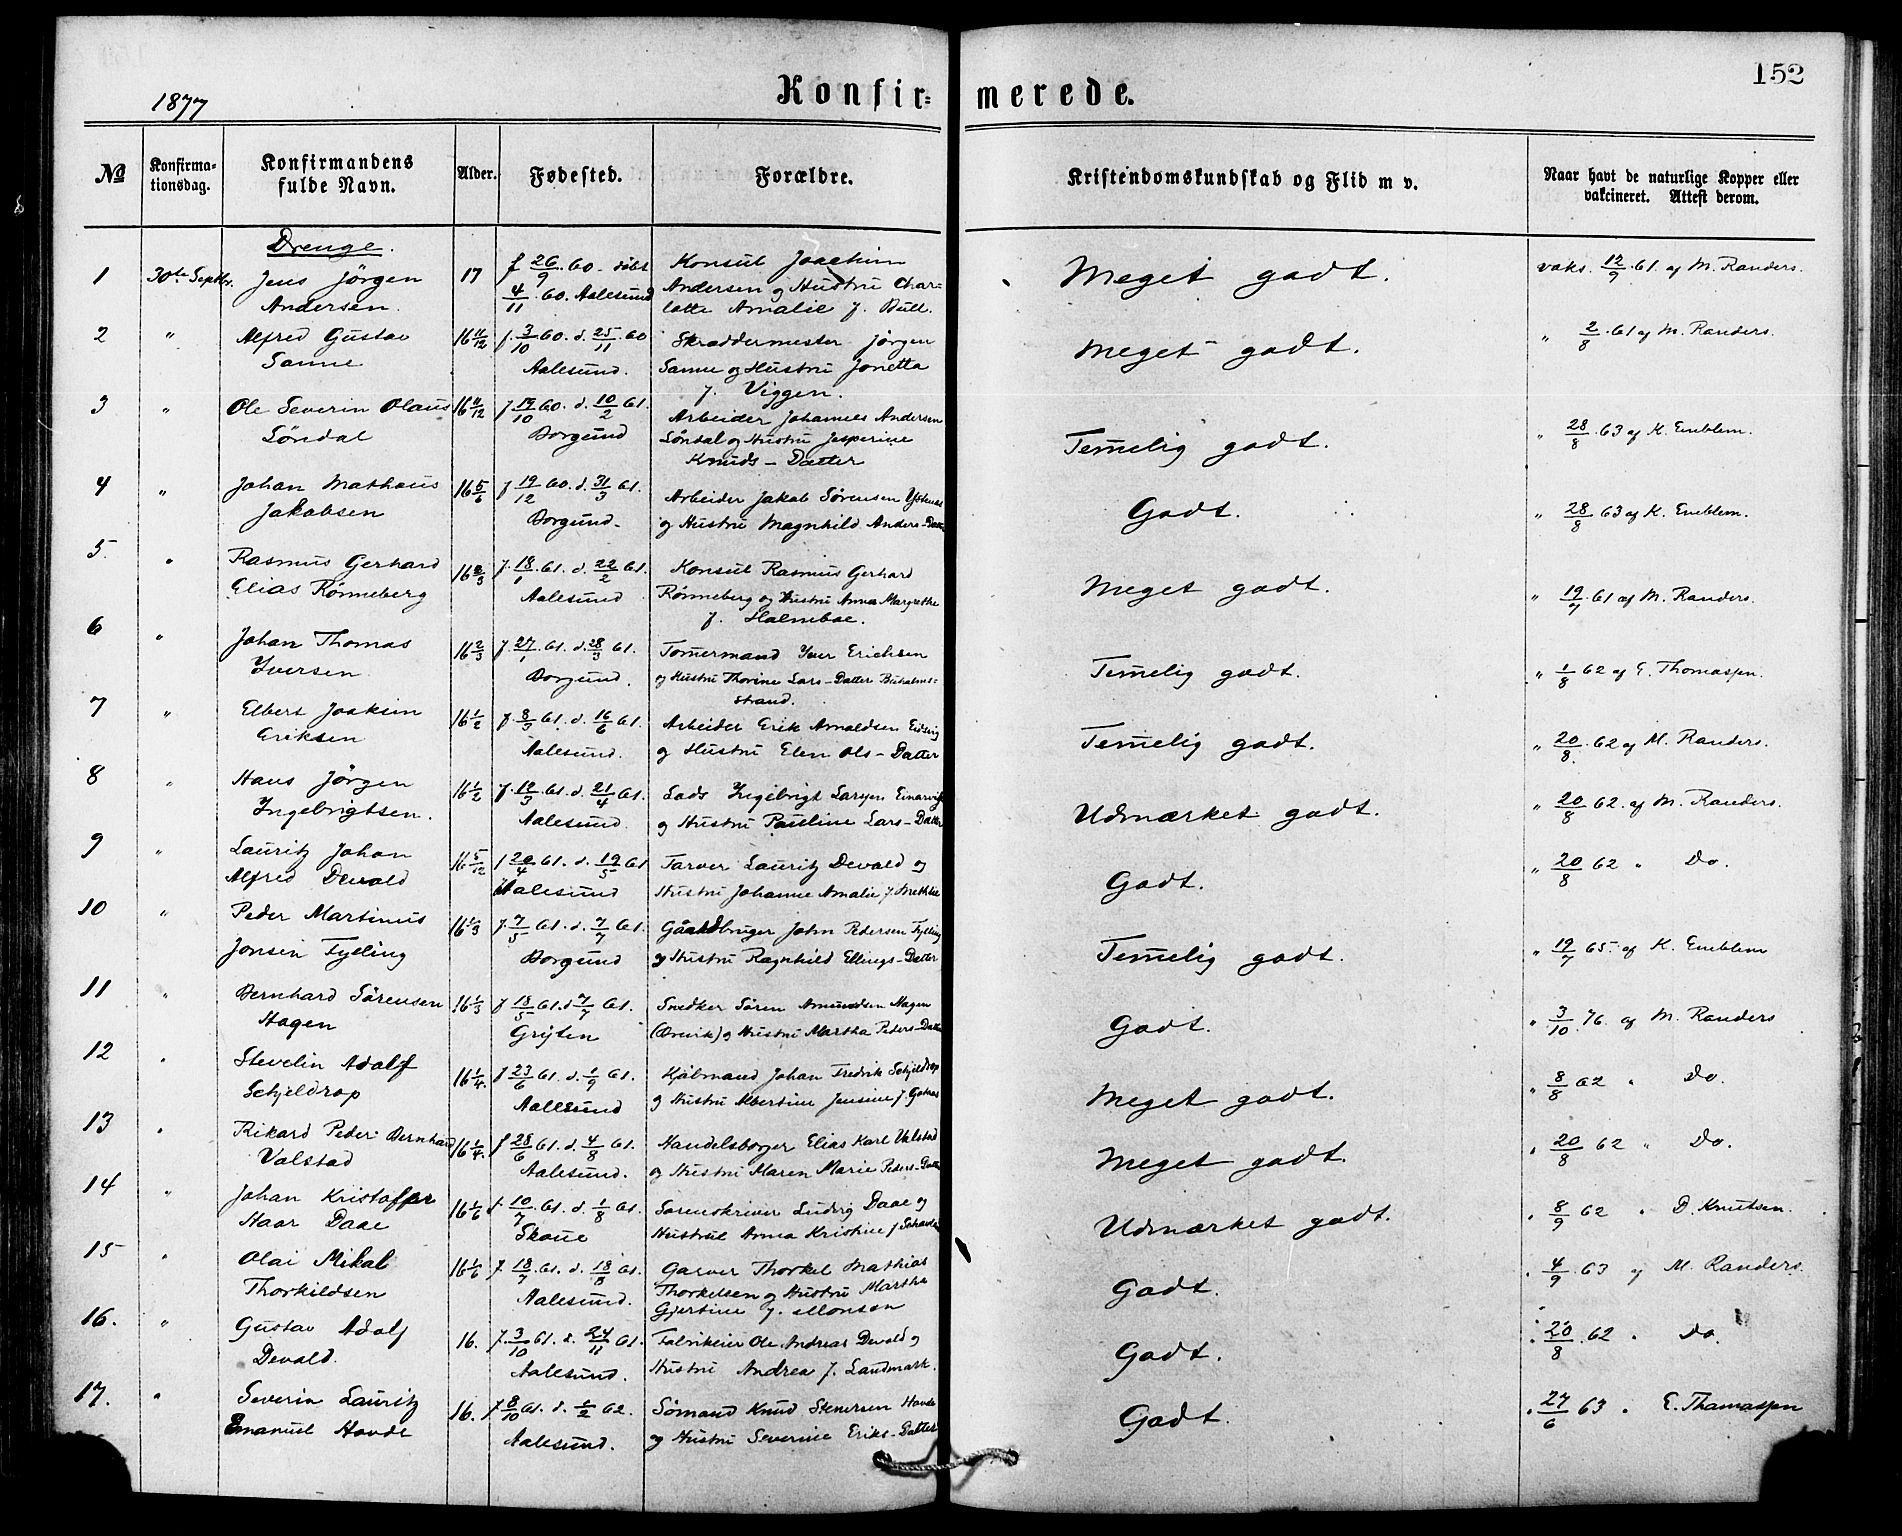 152
1877
Konfir= merede.
No
Konfirma-
tionsdag.
Konfirmandens
fulde Navn.
Alder.
Fødested.
Forældre.
Kristendomskundskab og Flid m v.
Naar havt de naturlige Kopper eller
vakcineret. Attest derom.
Drenge.
1 30te Septbr. Jens Jörgen 17 f 26/9 60 - döbt Konsul Joachim Meget godt. vaks. 12/9 61. af M. Randers.
Andersen. 4/11 60. Aalesund Andersen og Hustru Char=
lotte Amalie f. Bull.
2 " Alfred Gustav 16 11/12 f. 3/10 60. d. 25/11 60 Skræddermester Jörgen Meget godt. " 2/8 61 af M. Randers.
Sanne Aalesund. Sanne og Hustru Jonetta
f. Viggen.
3 " Ole Severin Olaus 16 11/12 f 19/10 60. d. 10/2 61. Arbeider Johannes Andersen Temelig godt. " 28/8 63 af K. Emblem.
Löndal Borgund Löndal og Hustru Jesperine
Knuds-Datter
4 " Johan Mathæus 16 5/6 f 19/12 60. d. 31/3 61. Arbeider Jakob Sörensen Godt. " 28/8 63 af K. Emblem.
Jakobsen Borgund- og Hustru Magnhild Anders-Datter
5. " Rasmus Gerhard 16 2/3 f. 18/1 61. d. 22/2 61. Konsul Rasmus Gerhard Meget godt. " 19/7 61 af M. Randers.
Elias Rönneberg Aalesund Rönneberg og Hustru Anna Margrethe
f. Holmeboe.
6 " Johan Thomas 16 2/3 f. 27/1 61. d. 28/3 61. Tömermand Iver Erichsen Temelig godt. " 1/8 62 af E. Thomassen.
Iversen Borgund. og Hustru Thorine Lars-Datter Buholms=
strand.
7 " Elbert Joakim 16 1/2 f. 8/3 61. d. 16/6 61. Arbeider Erik Arnoldsen Temelig godt. " 20/8 62 af M. Randers.
Eriksen Aalesund. og Hustru Elen Ols-Datter
8 " Hans Jörgen 16 1/2 f. 12/3 61. d. 21/4 61. Lods Ingebrigt Larsen Udmærket godt. " 20/8 62. af M. Randers.
Ingebrigtsen. Aalesund. og Hustru Pauline Lars-Datter
9 " Lauritz Johan 16 5/12 f 20/4 61. d. 19/5 61 Farver Lauritz Devold og Godt. " 20/8 62 " Do.
Alfred Devold Aalesund Hustru Johanne Amalie f.
10 " Peder Martinus 16 1/3 f. 7/5 61. d. 7/7 61. Gaardbruger John Pedersen Fylling Temelig godt. " 19/7 65. af K. Emblem
Jonsen Fylling Borgund og Hustru Ragnhild Ellings-Datter
11 " Bernhard Sörensen 16 1/3 f 18/5 61. d 7/7 61. Snedker Sören Amundsen Hagen Godt. " 3/10 76. af M. Randers
Hagen Grijten og Hustru Martha Peders-Datter
12 " Stevelin Adolf 16 1/4. f 23/6 61. d. 1/9 61. Kjöbmand Johan Fredrik Schjeldrop Meget godt. " 8/8 62 " Do.
Schjeldrop Aalesund og Hustru Albertine Jensine f.
13 " Rikard Peder Bernhard 16 1/4. f 28/6 61. d. 4/8 61. Handelsborger Elias Karl Valstad Meget godt. " 20/8 62 " Do.
Valstad Aalesund. og Hustru Maren Marie Peders-Datter
14 " Johan Kristoffer 16 1/6 f. 10/7 61. d. 1/8 61. Sorenskriver Ludvig Daae og Udmærket godt. " 8/9 62 " D. Knutsen.
Haar Daae Skoue Hustrue Anna Kristine f
15 " Olai Mikal 16 1/6 f. 18/7 61. d. 18/8 61. Garver Thorkel Mathias Godt. " 4/9 63 af M. Randers.
Thorkildsen Aalesund. Thorkelsen og Hustru Martha
Gjertine f. Monsen
16. " Gustav Adolf 16. f. 3/10 61. d. 24/11 61. Fabrikeier Ole Andreas Devold og Godt. " 20/8 62 " Do.
Devold. Aalesund. Hustru Andrea f. Landmark.
17. " Severin Lauritz 16. f 8/10 61. d. 1/2 62. Sömand Knud Stenersen Hovde Godt. " 27/6 63 " E. Thomassen
Emanuel Hovde Aalesund. og Hustru Severine Eriks-Datter